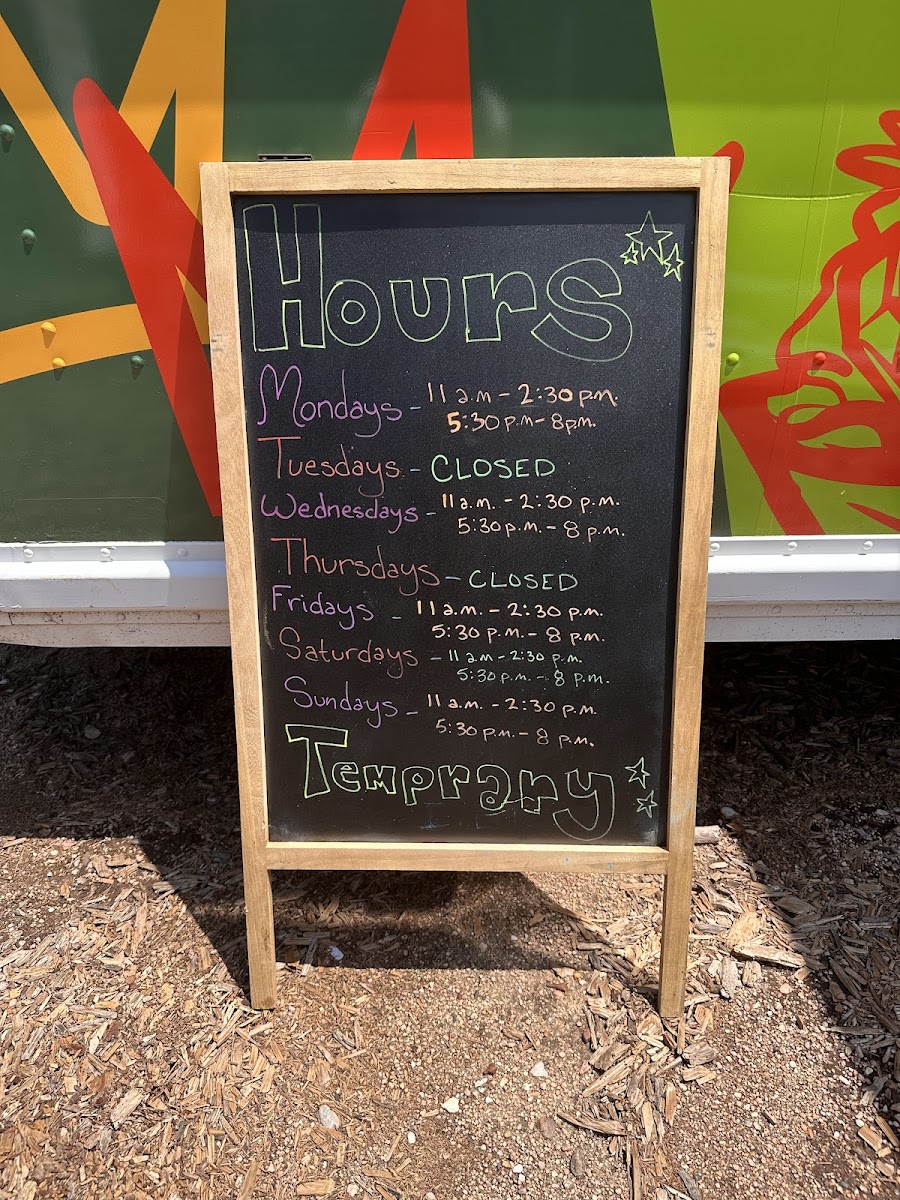 Hours
Mondays - 11 a.m - 2:30 p.m.
5:30 p.m - 8 p.m.
Tuesdays - CLOSED
Wednesdays - 11 a.m. - 2:30 p.m.
5:30 p.m. - 8 p.m.
Thursdays - CLOSED
Fridays - 11 a.m. - 2:30 p.m.
5:30 p.m. - 8 p.m.
Saturdays - 11 a.m - 2:30 p.m.
5:30 p.m. - 8 p.m.
Sundays - 11 a.m. - 2:30 p.m.
5:30 p.m. - 8 p.m.
Temprary